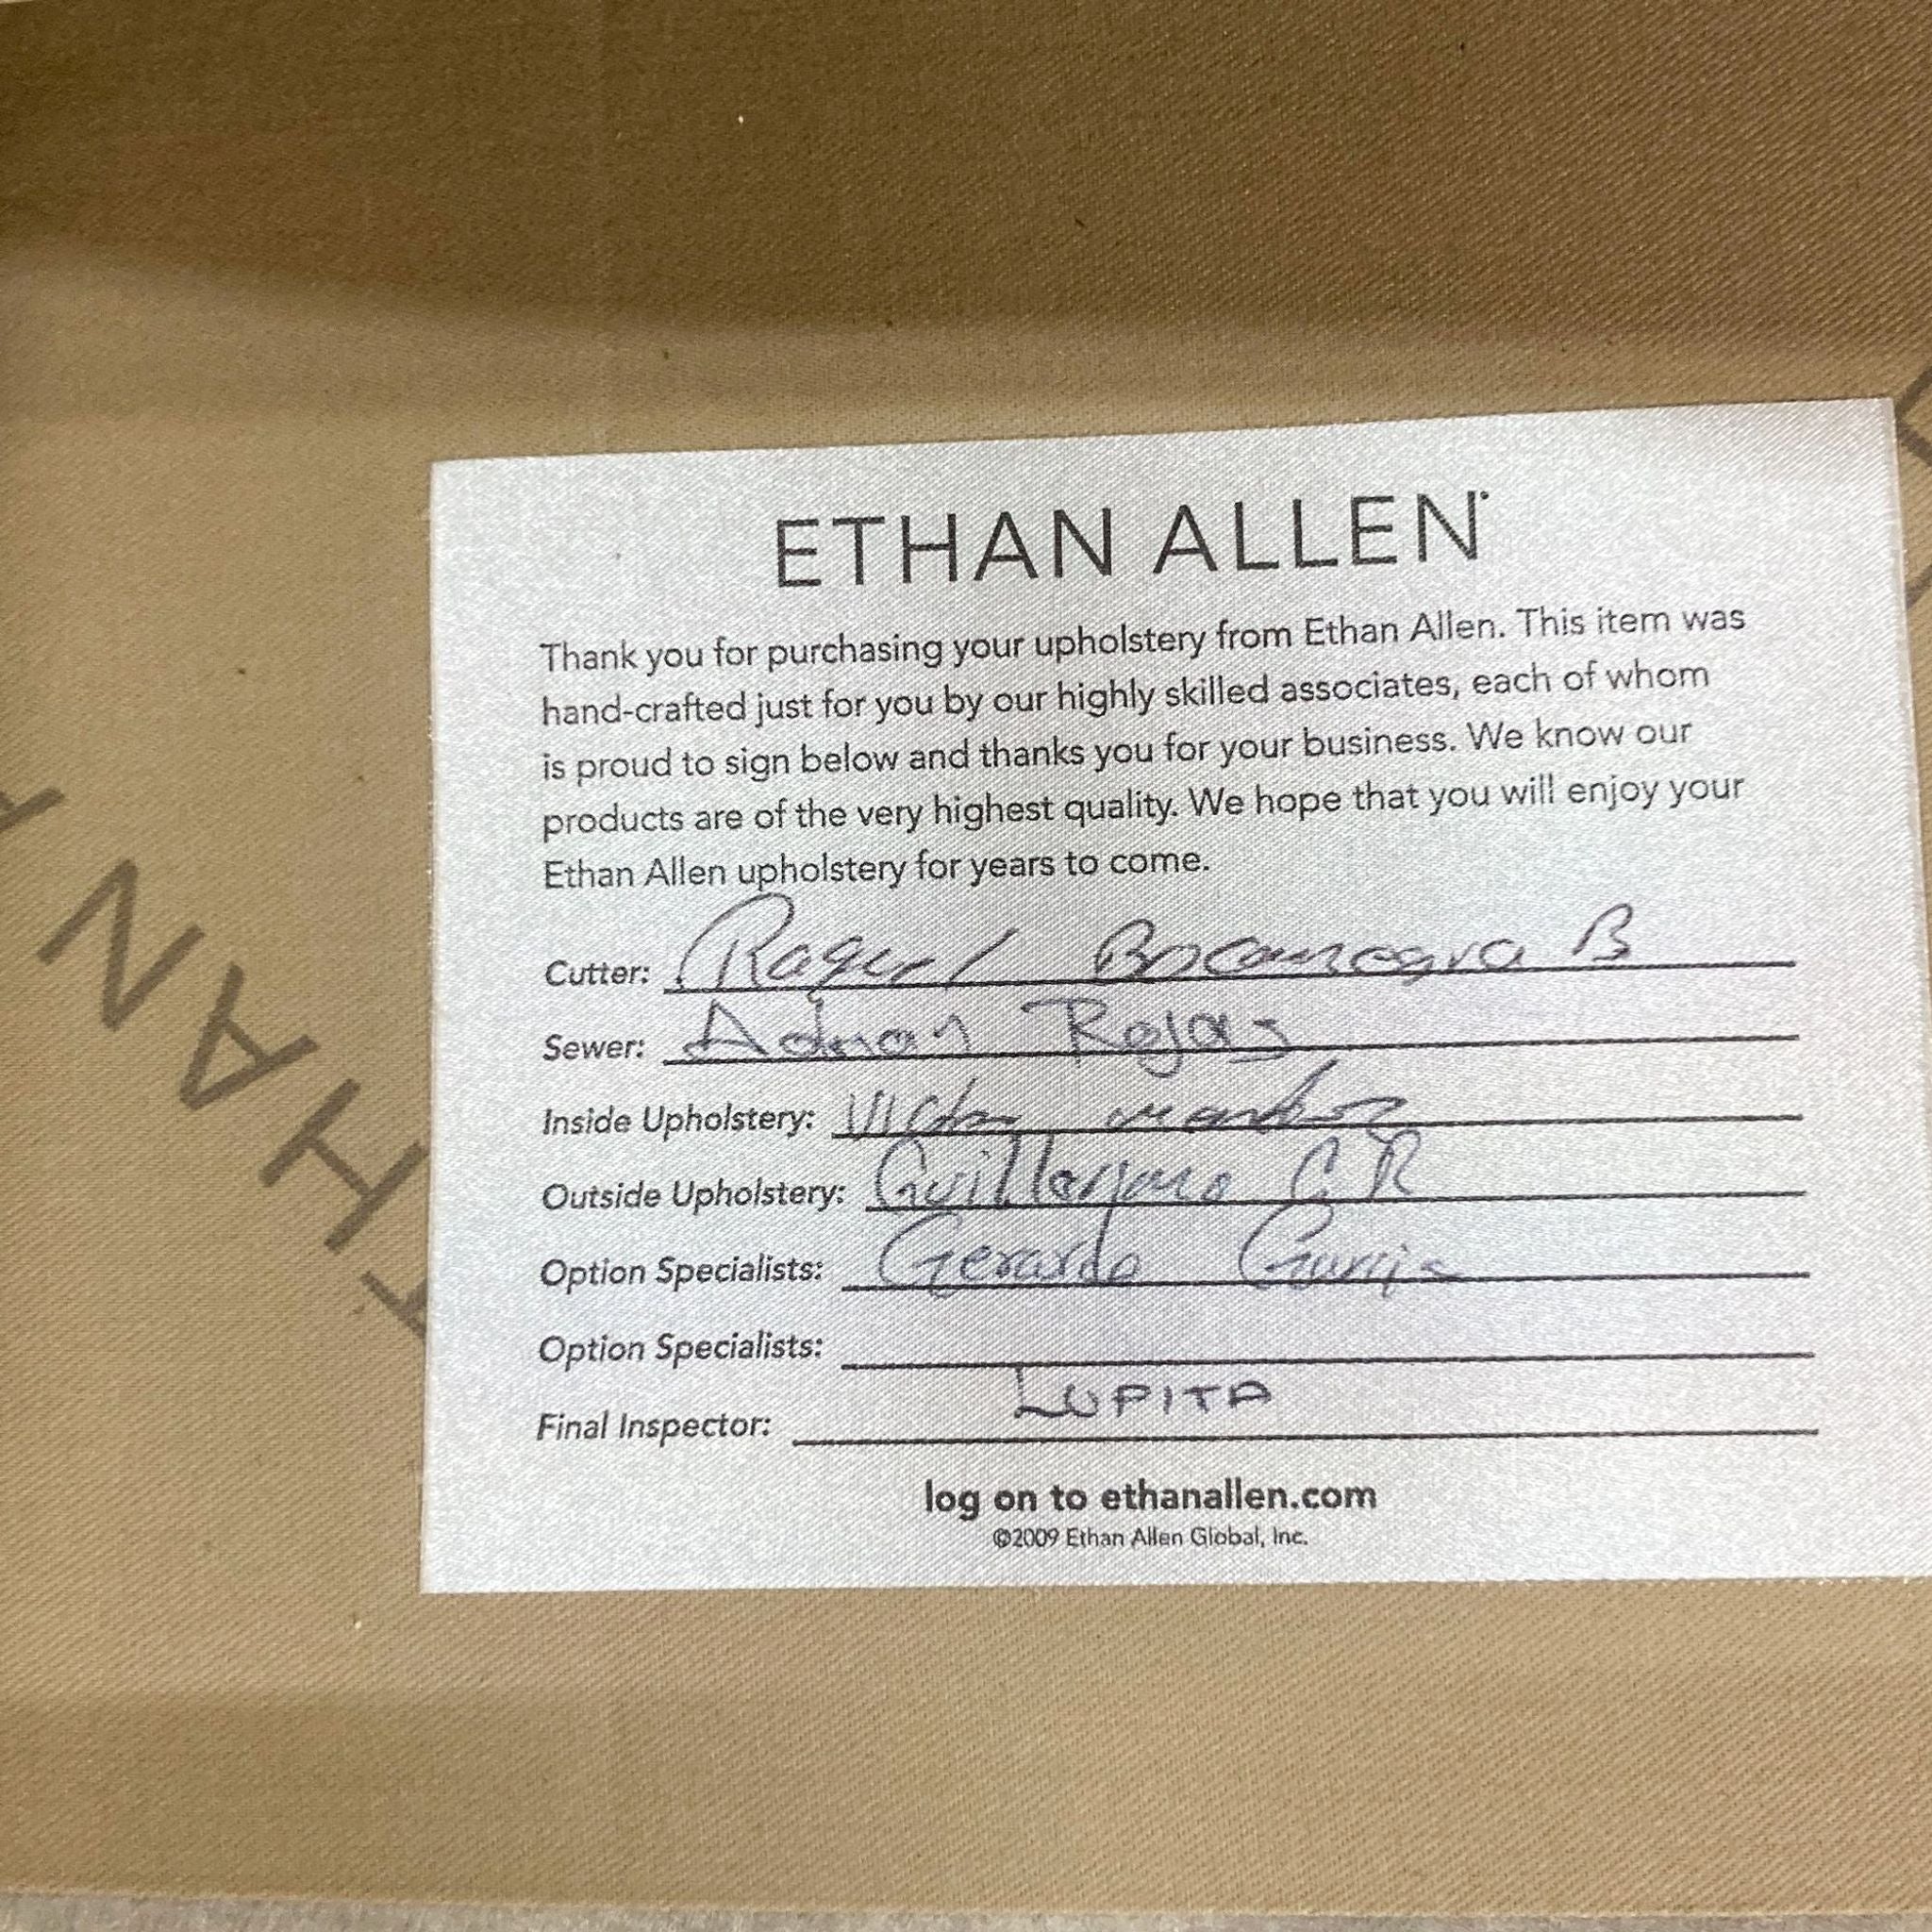 ETHAN ALLEN
Thank you for purchasing your upholstery from Ethan Allen. This item was
hand-crafted just for you by our highly skilled associates, each of whom
is proud to sign below and thanks you for your business. We know our
products are of the very highest quality. We hope that you will enjoy your
Ethan Allen upholstery for years to come.
Cutter: Raquel Bocanegra B
Sewer: Adrian Rojas
Inside Upholstery: Victor
Outside Upholstery: Guillermo C.R
Option Specialists: Gerardo Garcia
Option Specialists:
Final Inspector: LUPITA
log on to ethanallen.com
©2009 Ethan Allen Global, Inc.
THAN A